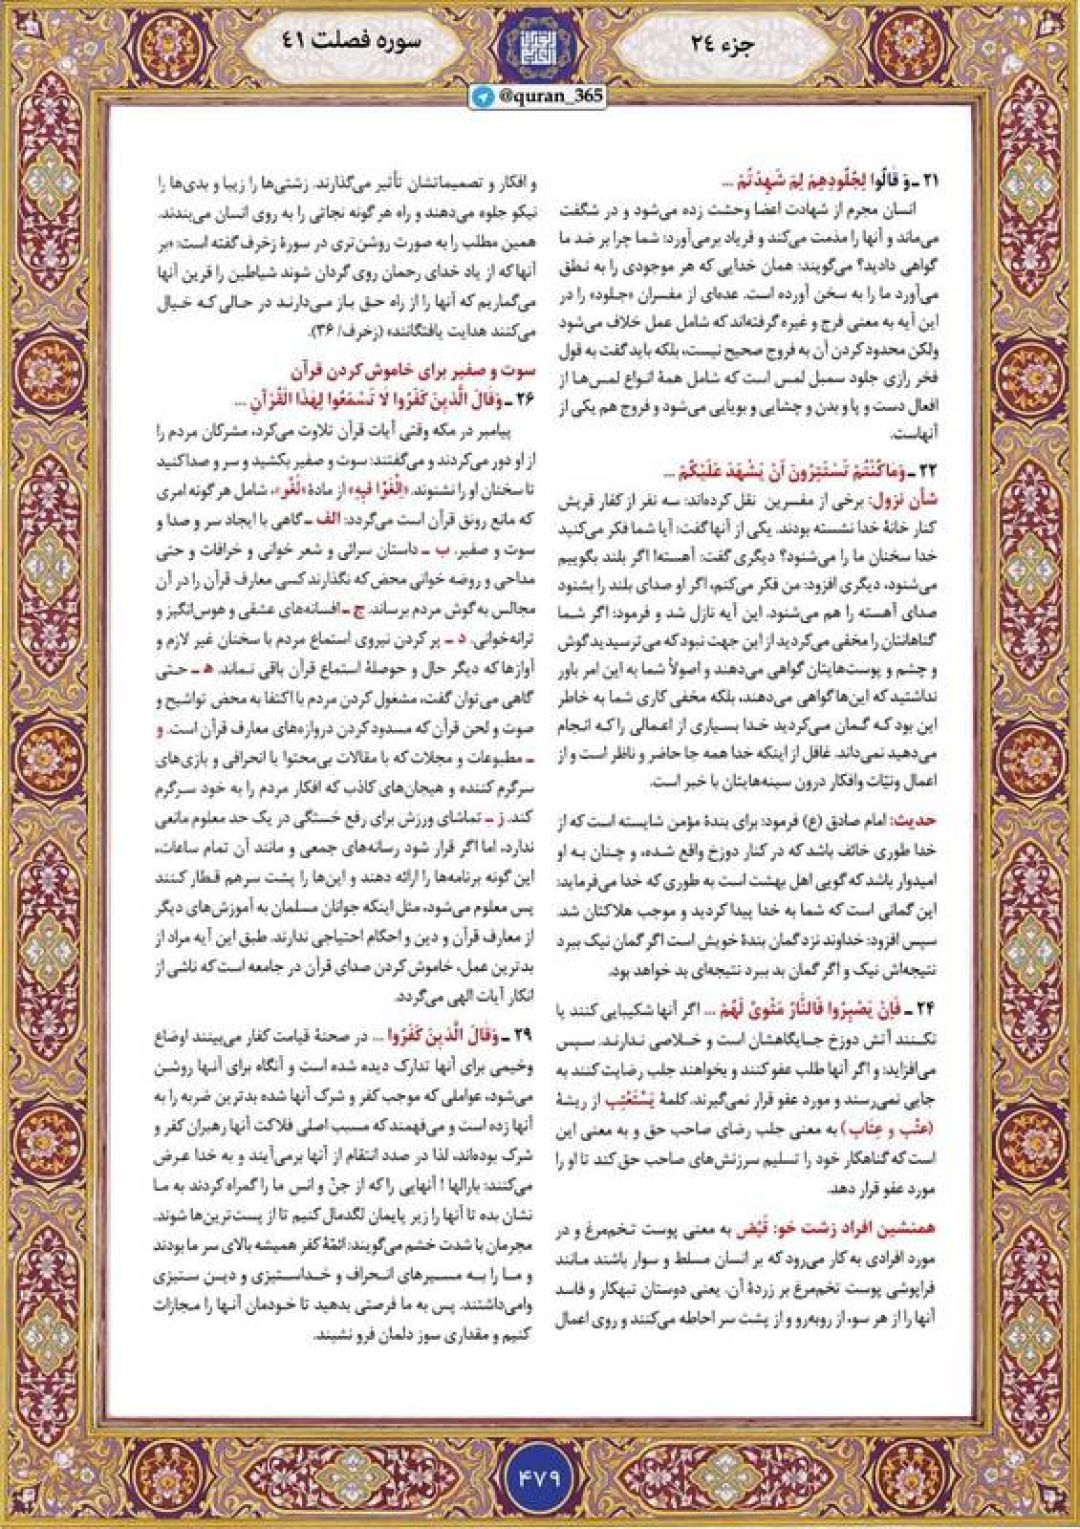 جزء ۲۴
سوره فصلت ۴۱
@quran_365
۲۱ ـ وَ قَالُوا لِجُلُودِهِمْ لِمَ شَهِدْتُمْ ...
انسان مجرم از شهادت اعضا وحشت زده می‌شود و در شگفت
می‌ماند و آنها را مذمت می‌کند و فریاد برمی‌آورد: شما چرا بر ضد ما
گواهی دادید؟ می‌گویند: همان خدایی که هر موجودی را به نطق
می‌آورد ما را به سخن آورده است. عده‌ای از مفسران «جلود» را در
این آیه به معنی فرج و غیره گرفته‌اند که شامل عمل خلاف می‌شود
ولکن محدود کردن آن به فروج صحیح نیست، بلکه باید گفت به قول
فخر رازی جلود سمبل لمس است که شامل همهٔ انواع لمس‌ها از
افعال دست و پا و بدن و چشایی و بویایی می‌شود و فروج هم یکی از
آنهاست.
۲۲ ـ وَمَا كُنْتُمْ تَسْتَتِرُونَ أَنْ يَشْهَدَ عَلَيْكُمْ ...
شأن نزول: برخی از مفسرین نقل کرده‌اند: سه نفر از کفار قریش
کنار خانهٔ خدا نشسته بودند. یکی از آنها گفت: آیا شما فکر می‌کنید
خدا سخنان ما را می‌شنود؟ دیگری گفت: آهسته! اگر بلند بگوییم
می‌شنود، دیگری افزود: من فکر می‌کنم، اگر او صدای بلند را بشنود
صدای آهسته را هم می‌شنود. این آیه نازل شد و فرمود: اگر شما
گناهانتان را مخفی می‌کردید از این جهت نبود که می‌ترسید گوش
و چشم و پوست‌هایتان گواهی می‌دهند و اصولاً شما به این امر باور
نداشتید که این‌ها گواهی می‌دهند، بلکه مخفی کاری شما به خاطر
این بود که گمان می‌کردید خدا بسیاری از اعمالی را که انجام
می‌دهید نمی‌داند. غافل از اینکه خدا همه جا حاضر و ناظر است و از
اعمال ونیّات وافکار درون سینه‌هایتان با خبر است.
حدیث: امام صادق (ع) فرمود: برای بندهٔ مؤمن شایسته است که از
خدا طوری خائف باشد که در کنار دوزخ واقع شده، و چنان به او
امیدوار باشد که گویی اهل بهشت است به طوری که خدا می‌فرماید:
این گمانی است که شما به خدا پیدا کردید و موجب هلاکتان شد.
سپس افزود: خداوند نزد گمان بندهٔ خویش است اگر گمان نیک ببرد
نتیجه‌اش نیک و اگر گمان بد ببرد نتیجه‌ای بد خواهد بود.
۲۴ ـ فَإِنْ يَصْبِرُوا فَالنَّارُ مَثْوًى لَهُمْ ... اگر آنها شکیبایی کنند یا
نکنند آتش دوزخ جایگاهشان است و خلاصی ندارند. سپس
می‌افزاید: و اگر آنها طلب عفو کنند و بخواهند جلب رضایت کنند به
جایی نمی‌رسند و مورد عفو قرار نمی‌گیرند. کلمهٔ یَسْتَعْتِب از ریشهٔ
(عَتْب و عِتاب) به معنی جلب رضای صاحب حق و به معنی این
است که گناهکار خود را تسلیم سرزنش‌های صاحب حق کند تا او را
مورد عفو قرار دهد.
همنشین افراد زشت خو: قَیْض به معنی پوست تخم‌مرغ و در
مورد افرادی به کار می‌رود که بر انسان مسلط و سوار باشند مانند
فراپوشی پوست تخم‌مرغ بر زردهٔ آن. یعنی دوستان تبهکار و فاسد
آنها را از هر سو، از روبه‌رو و از پشت سر احاطه می‌کنند و روی اعمال
و افکار و تصمیماتشان تأثیر می‌گذارند. زشتی‌ها را زیبا و بدی‌ها را
نیکو جلوه می‌دهند و راه هر گونه نجاتی را به روی انسان می‌بندند.
همین مطلب را به صورت روشن‌تری در سورهٔ زخرف گفته است: «بر
آنها که از یاد خدای رحمان روی گردان شوند شیاطین را قرین آنها
می‌گماریم که آنها را از راه حق باز می‌دارند در حالی که خیال
می‌کنند هدایت یافتگانند» (زخرف/ ۳۶).
سوت و صفیر برای خاموش کردن قرآن
۲۶ ـ وَقَالَ الَّذِينَ كَفَرُوا لَا تَسْمَعُوا لِهَذَا الْقُرْآنِ ...
پیامبر در مکه وقتی آیات قرآن تلاوت می‌کرد، مشرکان مردم را
از او دور می‌کردند و می‌گفتند: سوت و صفیر بکشید و سر و صدا کنید
تا سخنان او را نشنوند. «اِلْغَوْا فیهِ» از مادهٔ «لَغْو»، شامل هر گونه امری
که مانع رونق قرآن است می‌گردد: الف ـ گاهی با ایجاد سر و صدا و
سوت و صفیر. ب ـ داستان سرائی و شعر خوانی و خرافات و حتی
مداحی و روضه خوانی محض که نگذارند کسی معارف قرآن را در آن
مجالس به گوش مردم برساند. ج ـ افسانه‌های عشقی و هوس‌انگیز و
ترانه‌خوانی. د ـ پر کردن نیروی استماع مردم با سخنان غیر لازم و
آوازها که دیگر حال و حوصلهٔ استماع قرآن باقی نماند. هـ ـ حتی
گاهی می‌توان گفت، مشغول کردن مردم با اکتفا به محض تواشیح و
صوت و لحن قرآن که مسدود کردن دروازه‌های معارف قرآن است. و
ـ مطبوعات و مجلات که با مقالات بی‌محتوا یا انحرافی و بازی‌های
سرگرم کننده و هیجان‌های کاذب که افکار مردم را به خود سرگرم
کند. ز ـ تماشای ورزش برای رفع خستگی در یک حد معلوم مانعی
ندارد، اما اگر قرار شود رسانه‌های جمعی و مانند آن تمام ساعات،
این گونه برنامه‌ها را ارائه دهند و این‌ها را پشت سرهم قطار کنند
پس معلوم می‌شود، مثل اینکه جوانان مسلمان به آموزش‌های دیگر
از معارف قرآن و دین و احکام احتیاجی ندارند. طبق این آیه مراد از
بدترین عمل، خاموش کردن صدای قرآن در جامعه است که ناشی از
انکار آیات الهی می‌گردد.
۲۹ ـ وَقَالَ الَّذِينَ كَفَرُوا ... در صحنهٔ قیامت کفار می‌بینند اوضاع
وخیمی برای آنها تدارک دیده شده است و آنگاه برای آنها روشن
می‌شود، عواملی که موجب کفر و شرک آنها شده بدترین ضربه را به
آنها زده است و می‌فهمند که مسبب اصلی فلاکت آنها رهبران کفر و
شرک بوده‌اند، لذا در صدد انتقام از آنها برمی‌آیند و به خدا عرض
می‌کنند: بارالها ! آنهایی را که از جنّ و انس ما را گمراه کردند به ما
نشان بده تا آنها را زیر پایمان لگدمال کنیم تا از پست‌ترین‌ها شوند.
مجرمان با شدت خشم می‌گویند: ائمّهٔ کفر همیشه بالای سر ما بودند
و ما را به مسیرهای انحراف و خداستیزی و دین ستیزی
وامی‌داشتند. پس به ما فرصتی بدهید تا خودمان آنها را مجازات
کنیم و مقداری سوز دلمان فرو نشیند.
۴۷۹